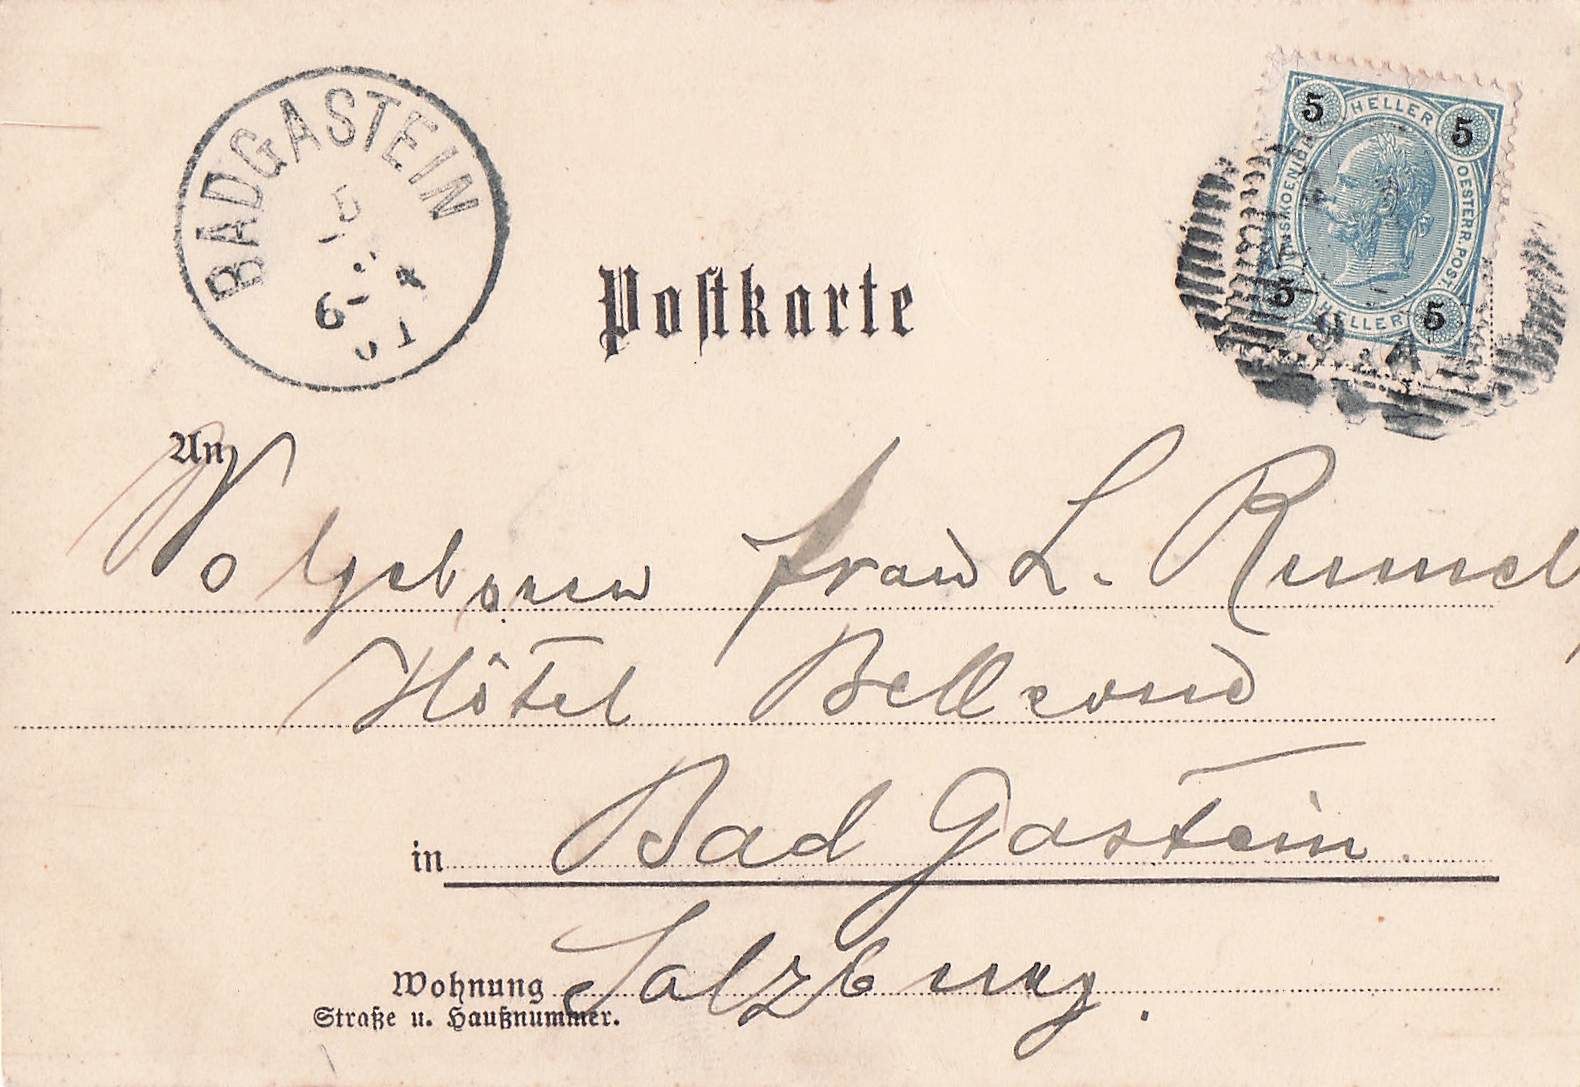 BADGASTEIN
5
6-4
01
5 HELLER 5
OESTERR. POST.
5 HELLER 5
9 4
Postkarte
An
Wolgeboren Frau L. Rumel
Hôtel Bellevue
in Bad Gastein.
Salzburg.
Wohnung
Straße u. Haußnummer.